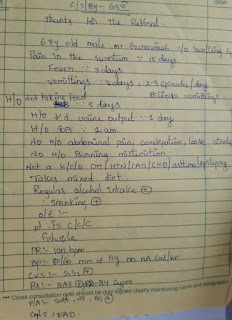 C/S/By - GSII
Thanks for the Referral
68y old male mr c/o Swelling
Pain in the scrotum ∵ 15 days
Fever ∵ 3 days
vomittings ∵ 3 days, 2-3 Episode/day
Bilious vomittings
H/O Not taking food ∵ 3 days
H/O ↓d urine output ∵ 1 day
H/O SOB ∵ 1 am
No H/O abdominal pain, constipation, loose stools
No H/O Burning micturition
Not a K/C/O DM/HTN/CAD/CKD/asthma/epilepsy
Takes mixed diet
Regular alcohol intake +
Smoking +
O/E :-
pt is C/C/C
Febrile
PR:- 100 bpm
BP:- 80/60 mm of Hg on NA 6ml/hr
CVS :- S1S2 +
RS :- BAE + cpm
*** Cross consultation note should be duly signed clearly mentioning name and designation
P/A:- Soft, NT, BS +
CNS : NAD.